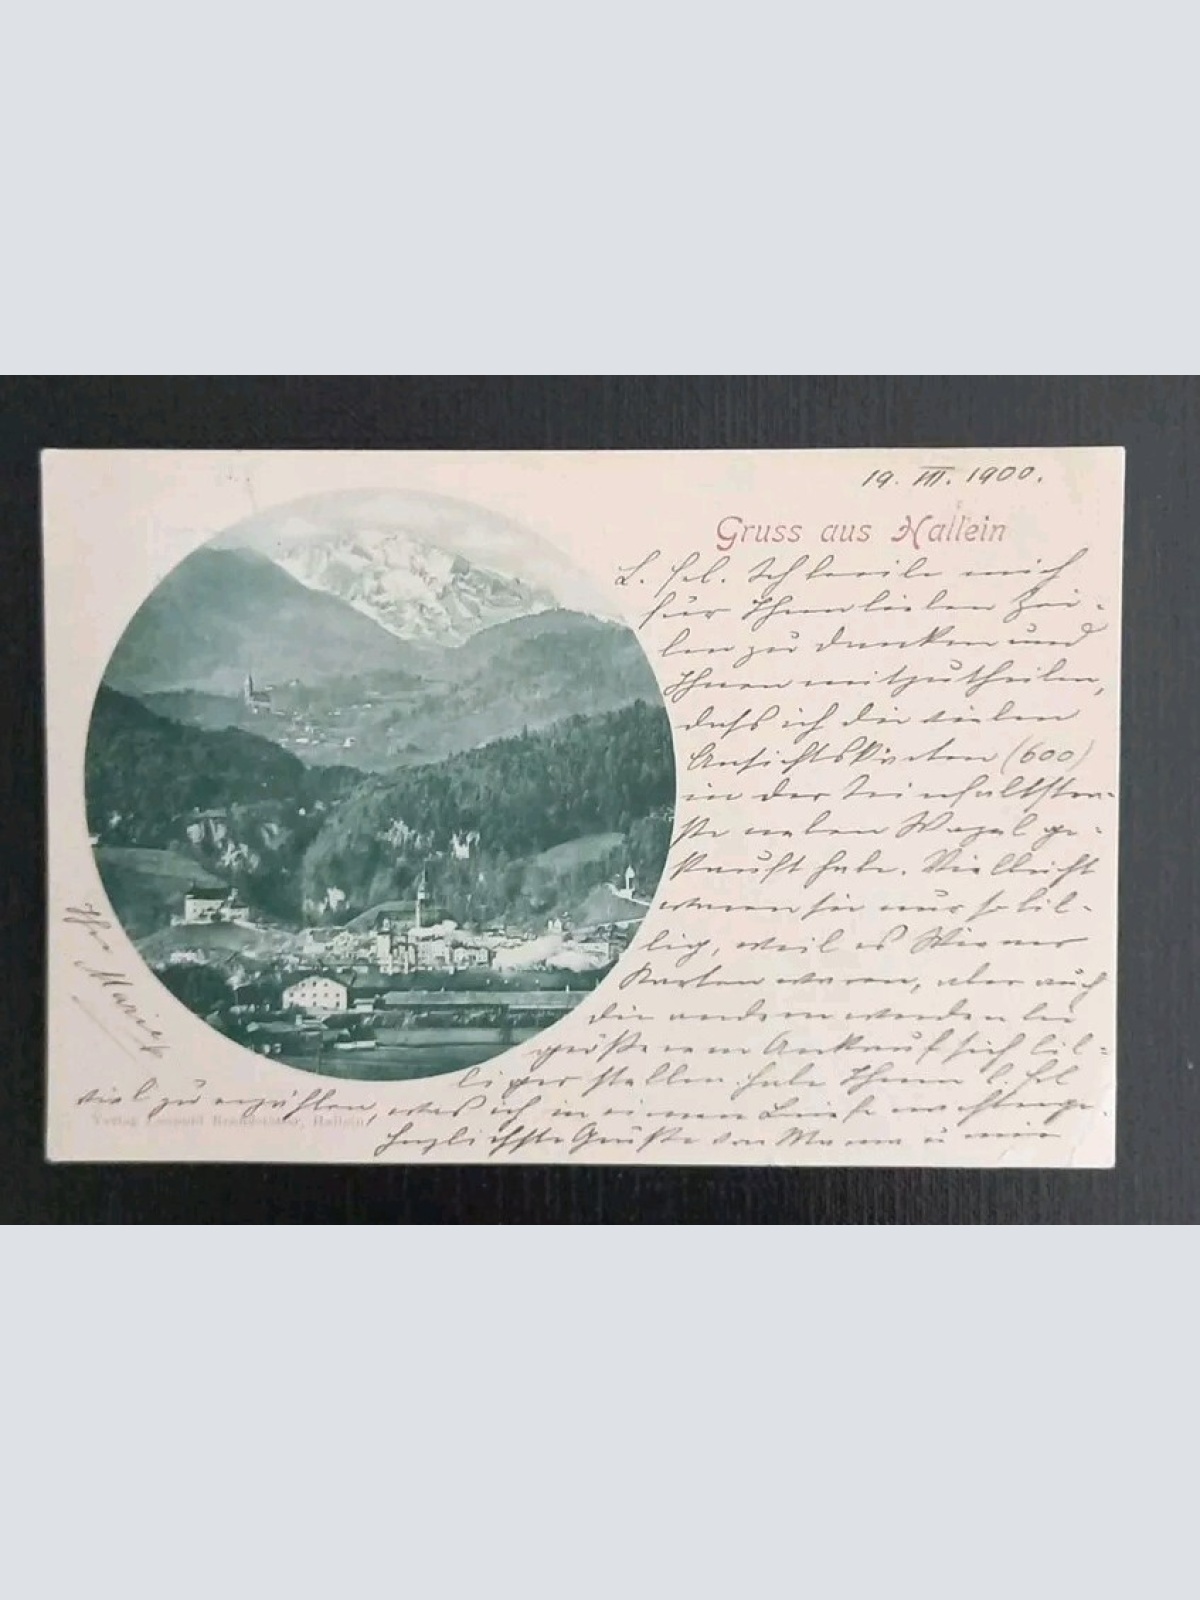 19. III. 1900.
Gruss aus Hallein
L. Frl. Ich beeile mich
für Ihren lieben Zei-
len zu danken und
Ihnen mitzutheilen,
daß ich die vielen
Ansichtskarten (600)
in der
neben ge-
kauft habe. Vielleicht
waren sie nur so bil-
lig, weil es Wiener
Karten waren, aber auch
die andern werden bei
größerem Ankauf sich bil-
liger stellen. habe Ihnen l. Frl
viel zu erzählen, was ich in einem Briefe
Herzlichste Grüße von Mama u mir
Ihre Marie
Verlag Hallein